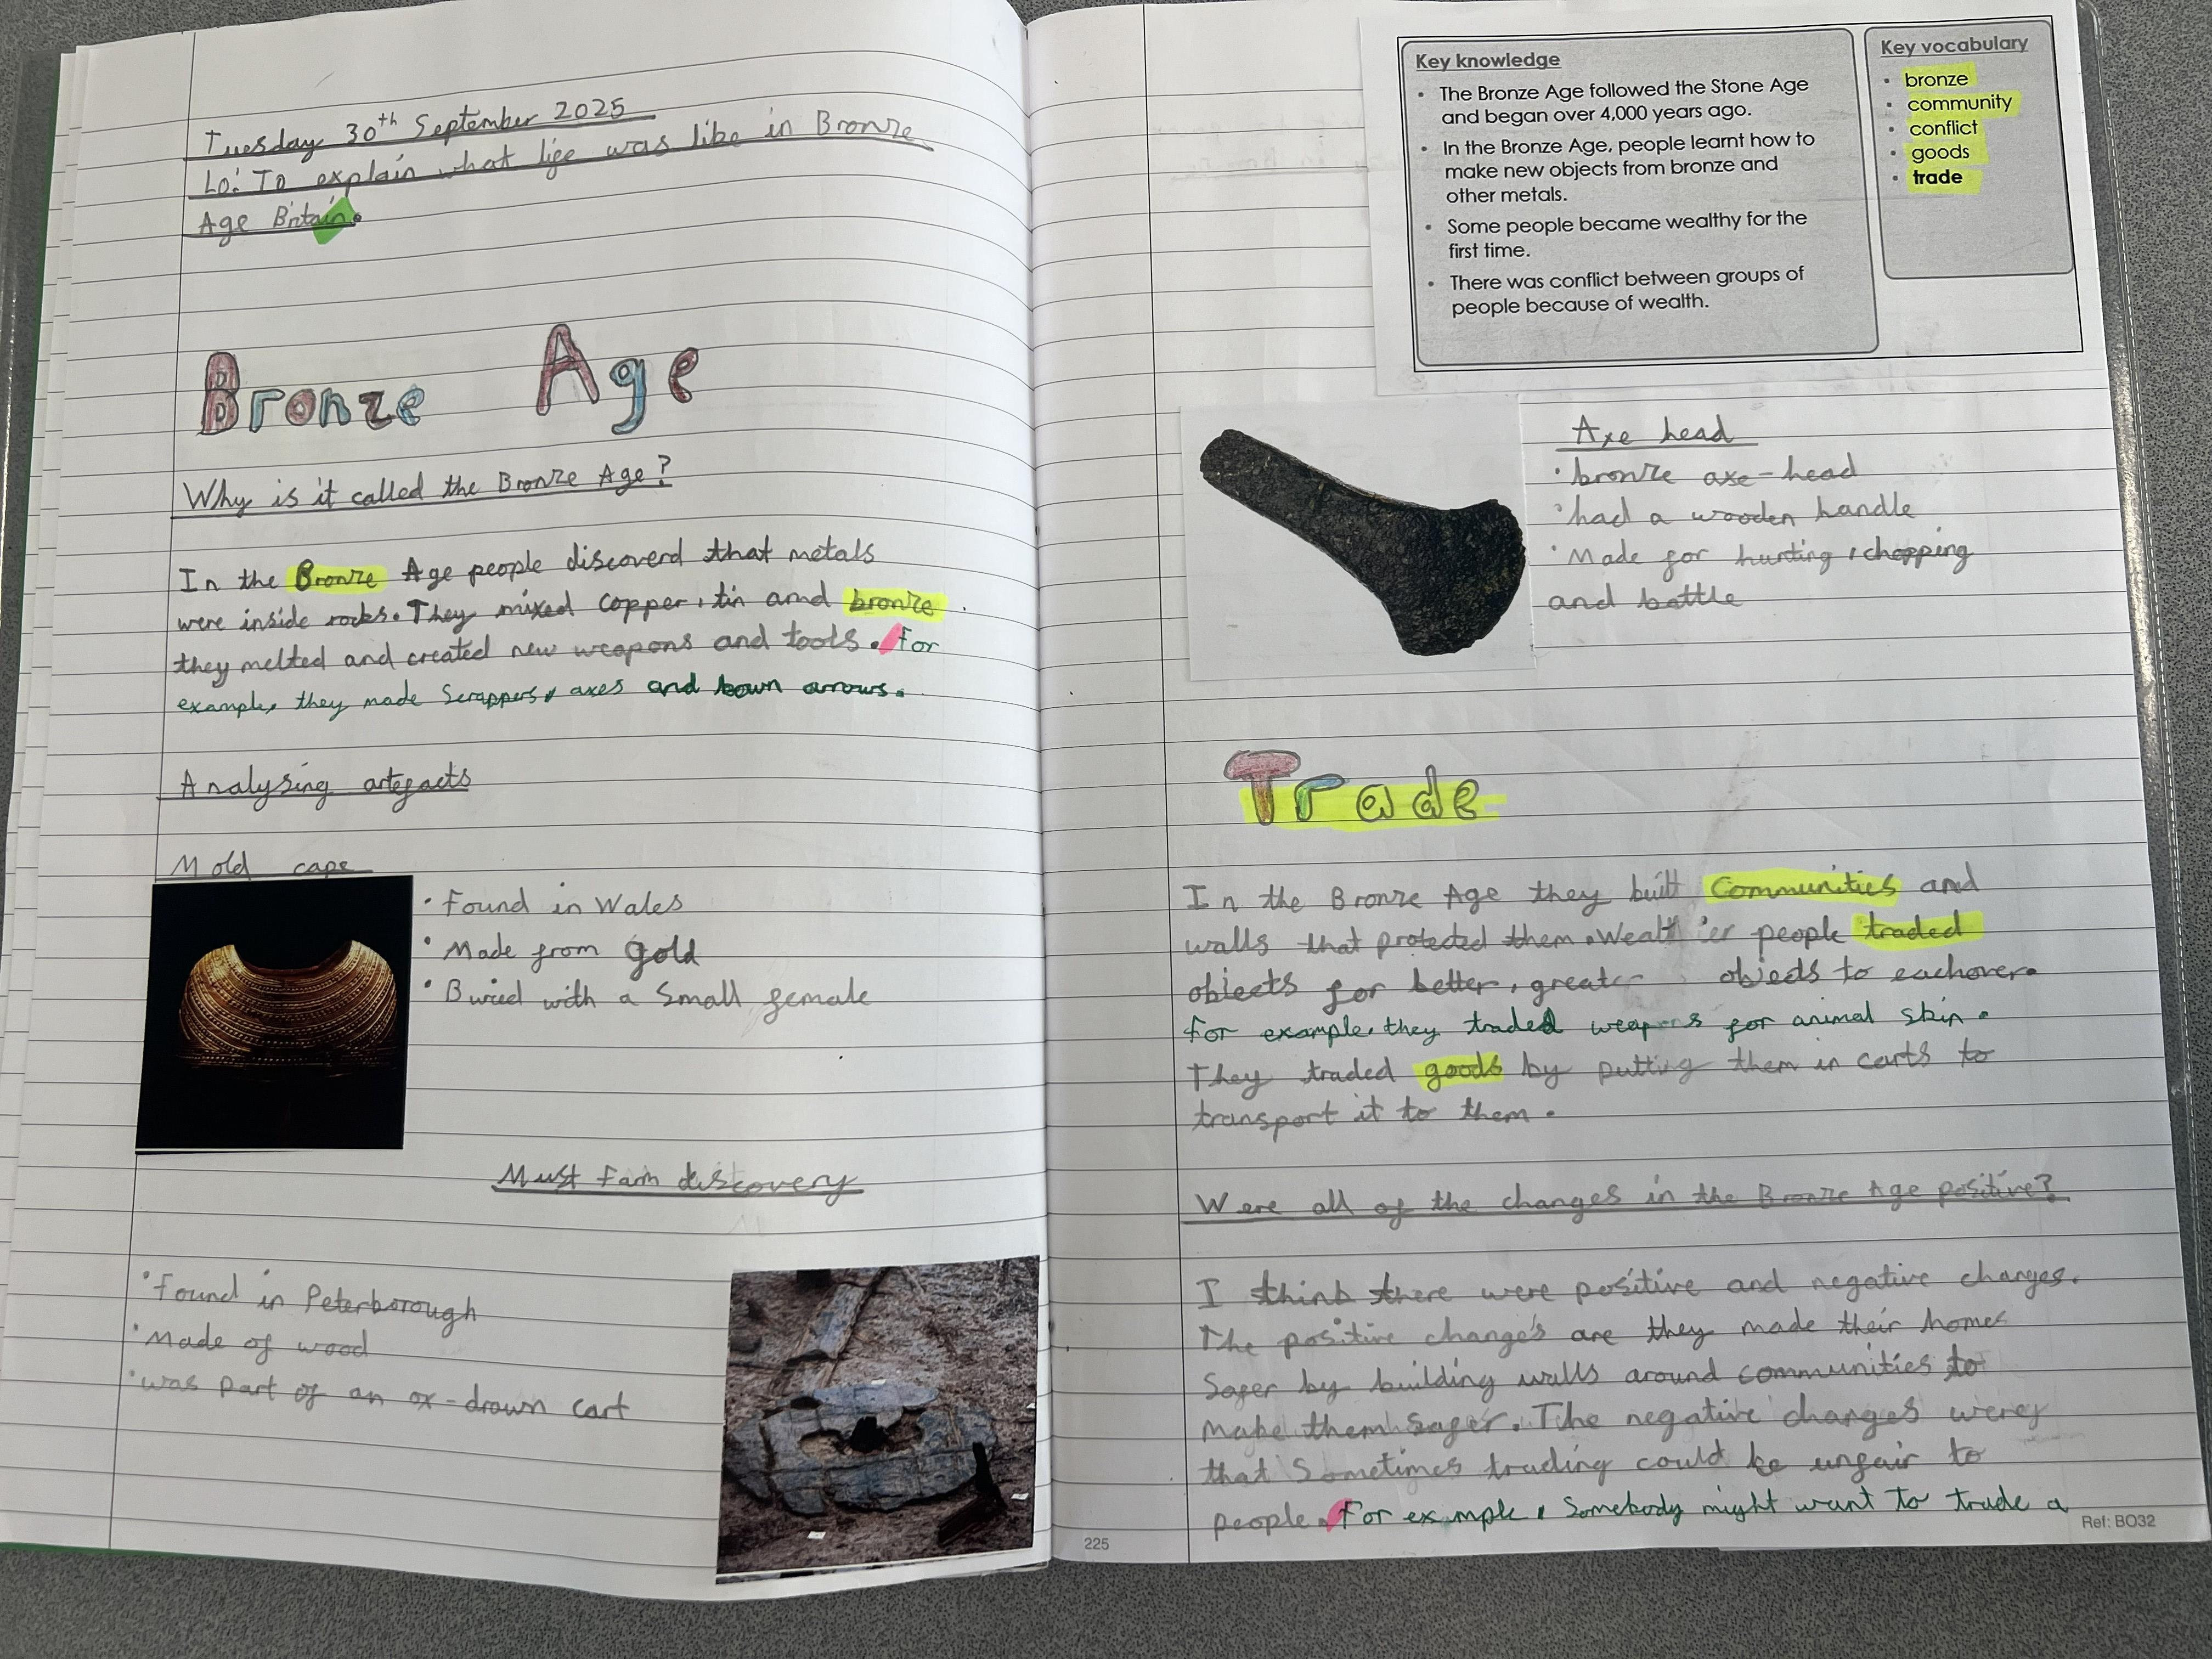 Tuesday 30th September 2025
Lo: To explain what life was like in Bronze
Age Britain.
Bronze Age
Why is it called the Bronze Age?
In the Bronze Age people discoverd that metals
were inside rocks. They mixed copper, tin amd bronze
they melted and created new weapons and tools. For
example, they made Scrappers, axes and bown arrows.
Analysing artefacts
Mold cape
• Found in Wales
• Made from gold
• Buried with a small female
Must Farm discovery
• Found in Peterborough
• Made of wood
• was part of an ox-drawn cart
Key knowledge
• The Bronze Age followed the Stone Age
and began over 4,000 years ago.
• In the Bronze Age, people learnt how to
make new objects from bronze and
other metals.
• Some people became wealthy for the
first time.
• There was conflict between groups of
people because of wealth.
Key vocabulary
• bronze
• community
• conflict
• goods
• trade
Axe head
• bronze axe-head
• had a wooden handle
• Made for hunting, chopping
and battle
Trade
In the Bronze Age they built Communities and
walls that protected them. Wealthier people traded
objects for better, greater objects to eachover.
For example, they traded weapons for animal skin.
They traded goods by putting them in carts to
transport it to them.
Were all of the changes in the Bronze Age positive?
I think there were positive and negative changes.
The positive change's are they made their homes
Safer by building walls around communities to
make them safer. The negative changes were
that Sometimes trading could be unfair to
people. For exmple, Somebody might want to trade a
225
Ref: BO32